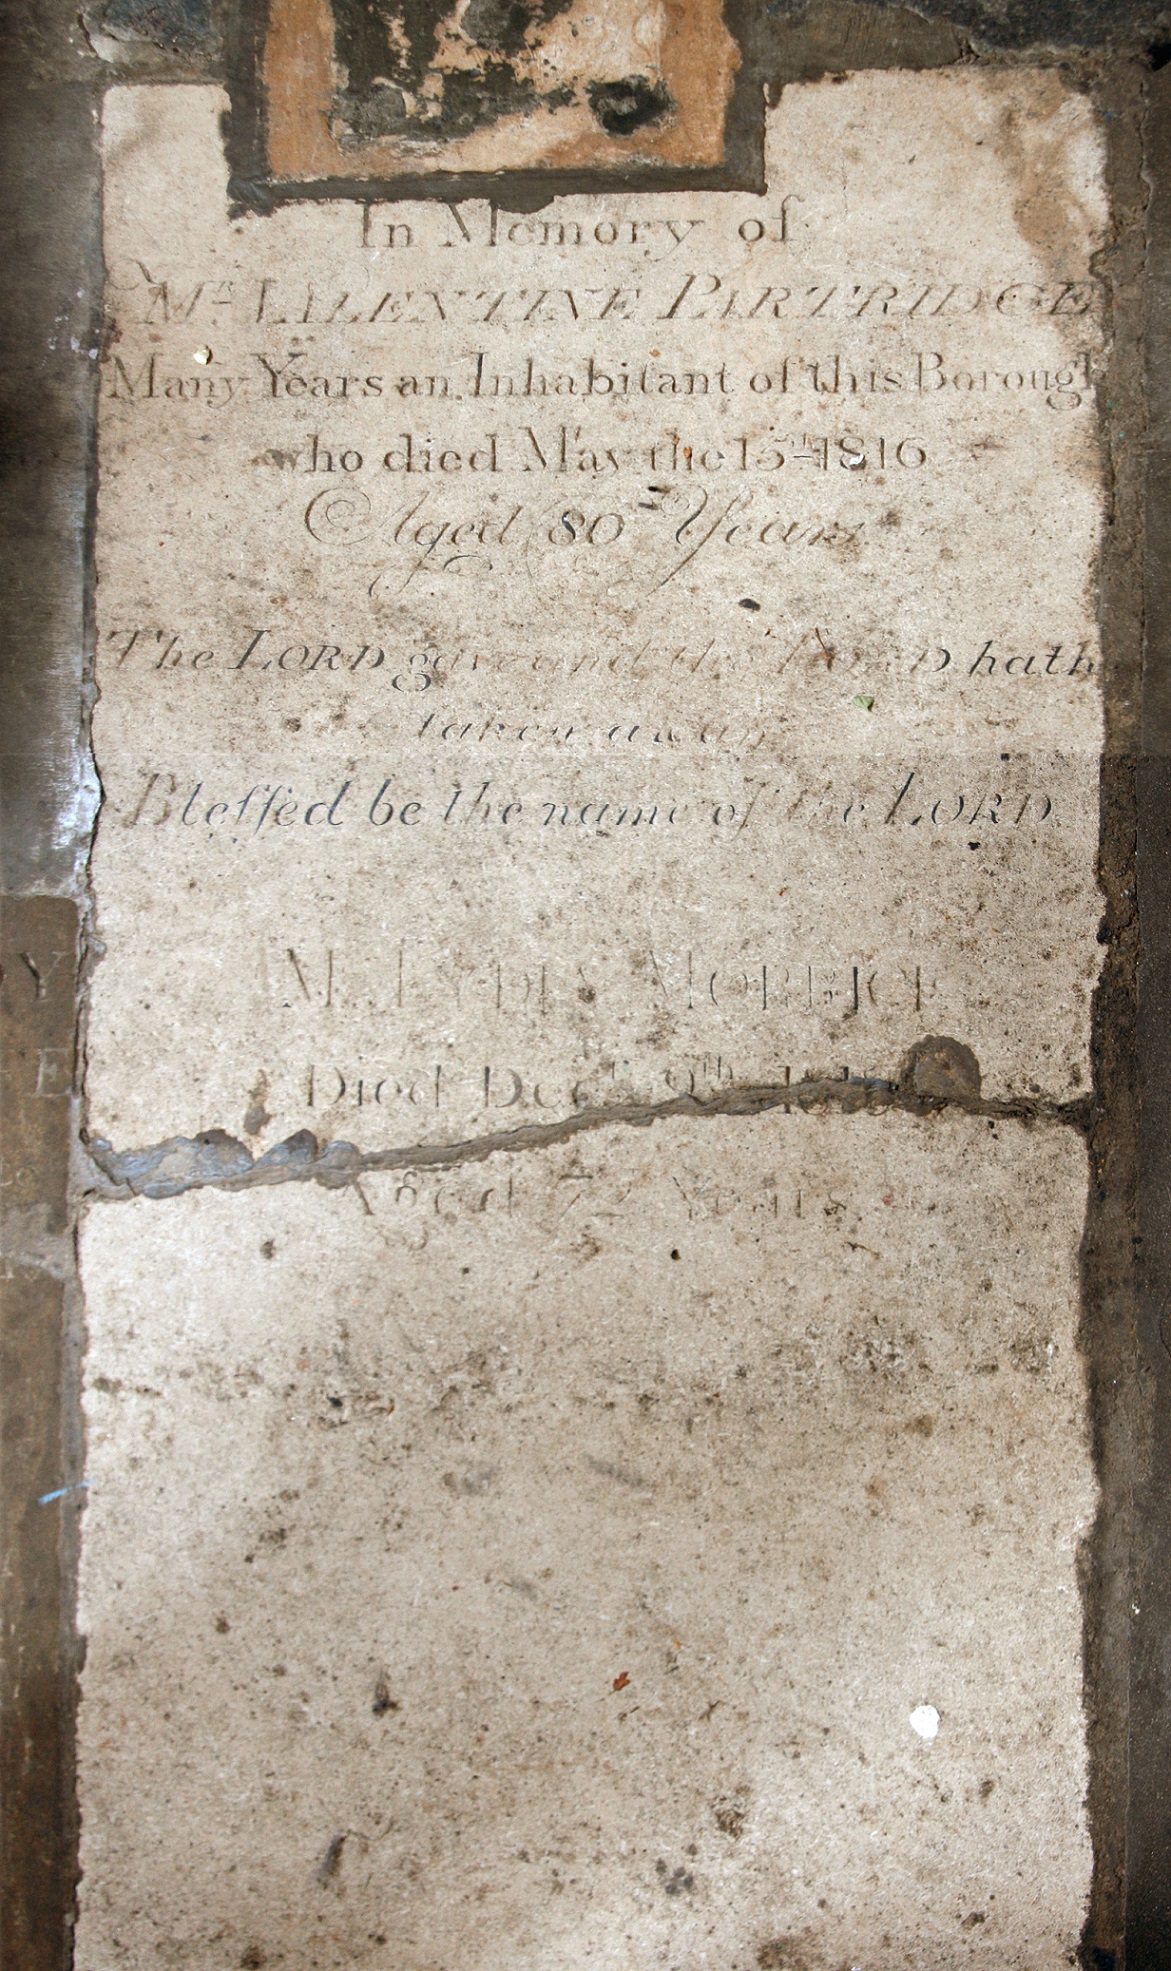 In Memory of
Mr. VALENTINE PARTRIDGE
Many Years an Inhabitant of this Borough
who died May the 15th 1816
Aged 80 Years
The LORD gave and the LORD hath
taken away
Blessed be the name of the LORD.
LYDIA MORRICE
Died Decr. 9th
Aged 72 Years
Y
E